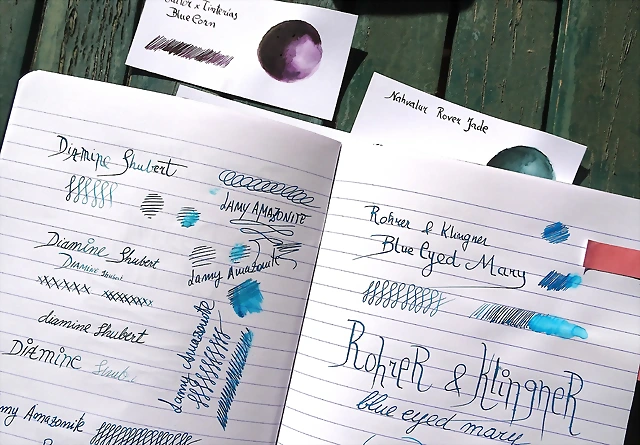 x Tinterías
Blue Corn
Nahvalur Rover Jade
Diamine Shubert
LAMY AMAZONITE
Diamine Shubert
Diamine Shubert
Lamy Amazonite
diamine Shubert
Diamine
Lamy Amazonite
my Amazonite
Rohrer & Klingner
Blue Eyed Mary
Rohrer & Klingner
blue eyed mary